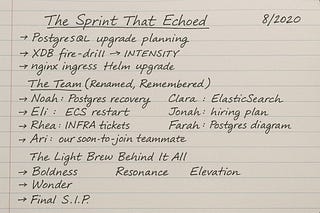 The Sprint That Echoed 8/2020
→ PostgreSQL upgrade planning
→ XDB fire-drill → INTENSITY
→ nginx ingress Helm upgrade
The Team (Renamed, Remembered)
→ Noah: Postgres recovery Clara: ElasticSearch
→ Eli: ECS restart Jonah: hiring plan
→ Rhea: INFRA tickets Farah: Postgres diagram
→ Ari: our soon-to-join teammate
The Light Brew Behind It All
→ Boldness Resonance Elevation
→ Wonder
→ Final S.I.P.